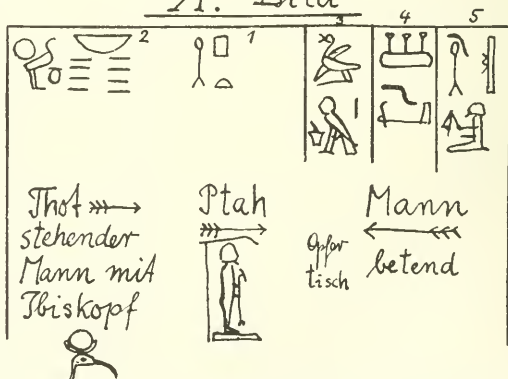 2
1
3
4
5
Thot
stehender
Mann mit
Ibiskopf
Ptah
Opfer
tisch
Mann
betend